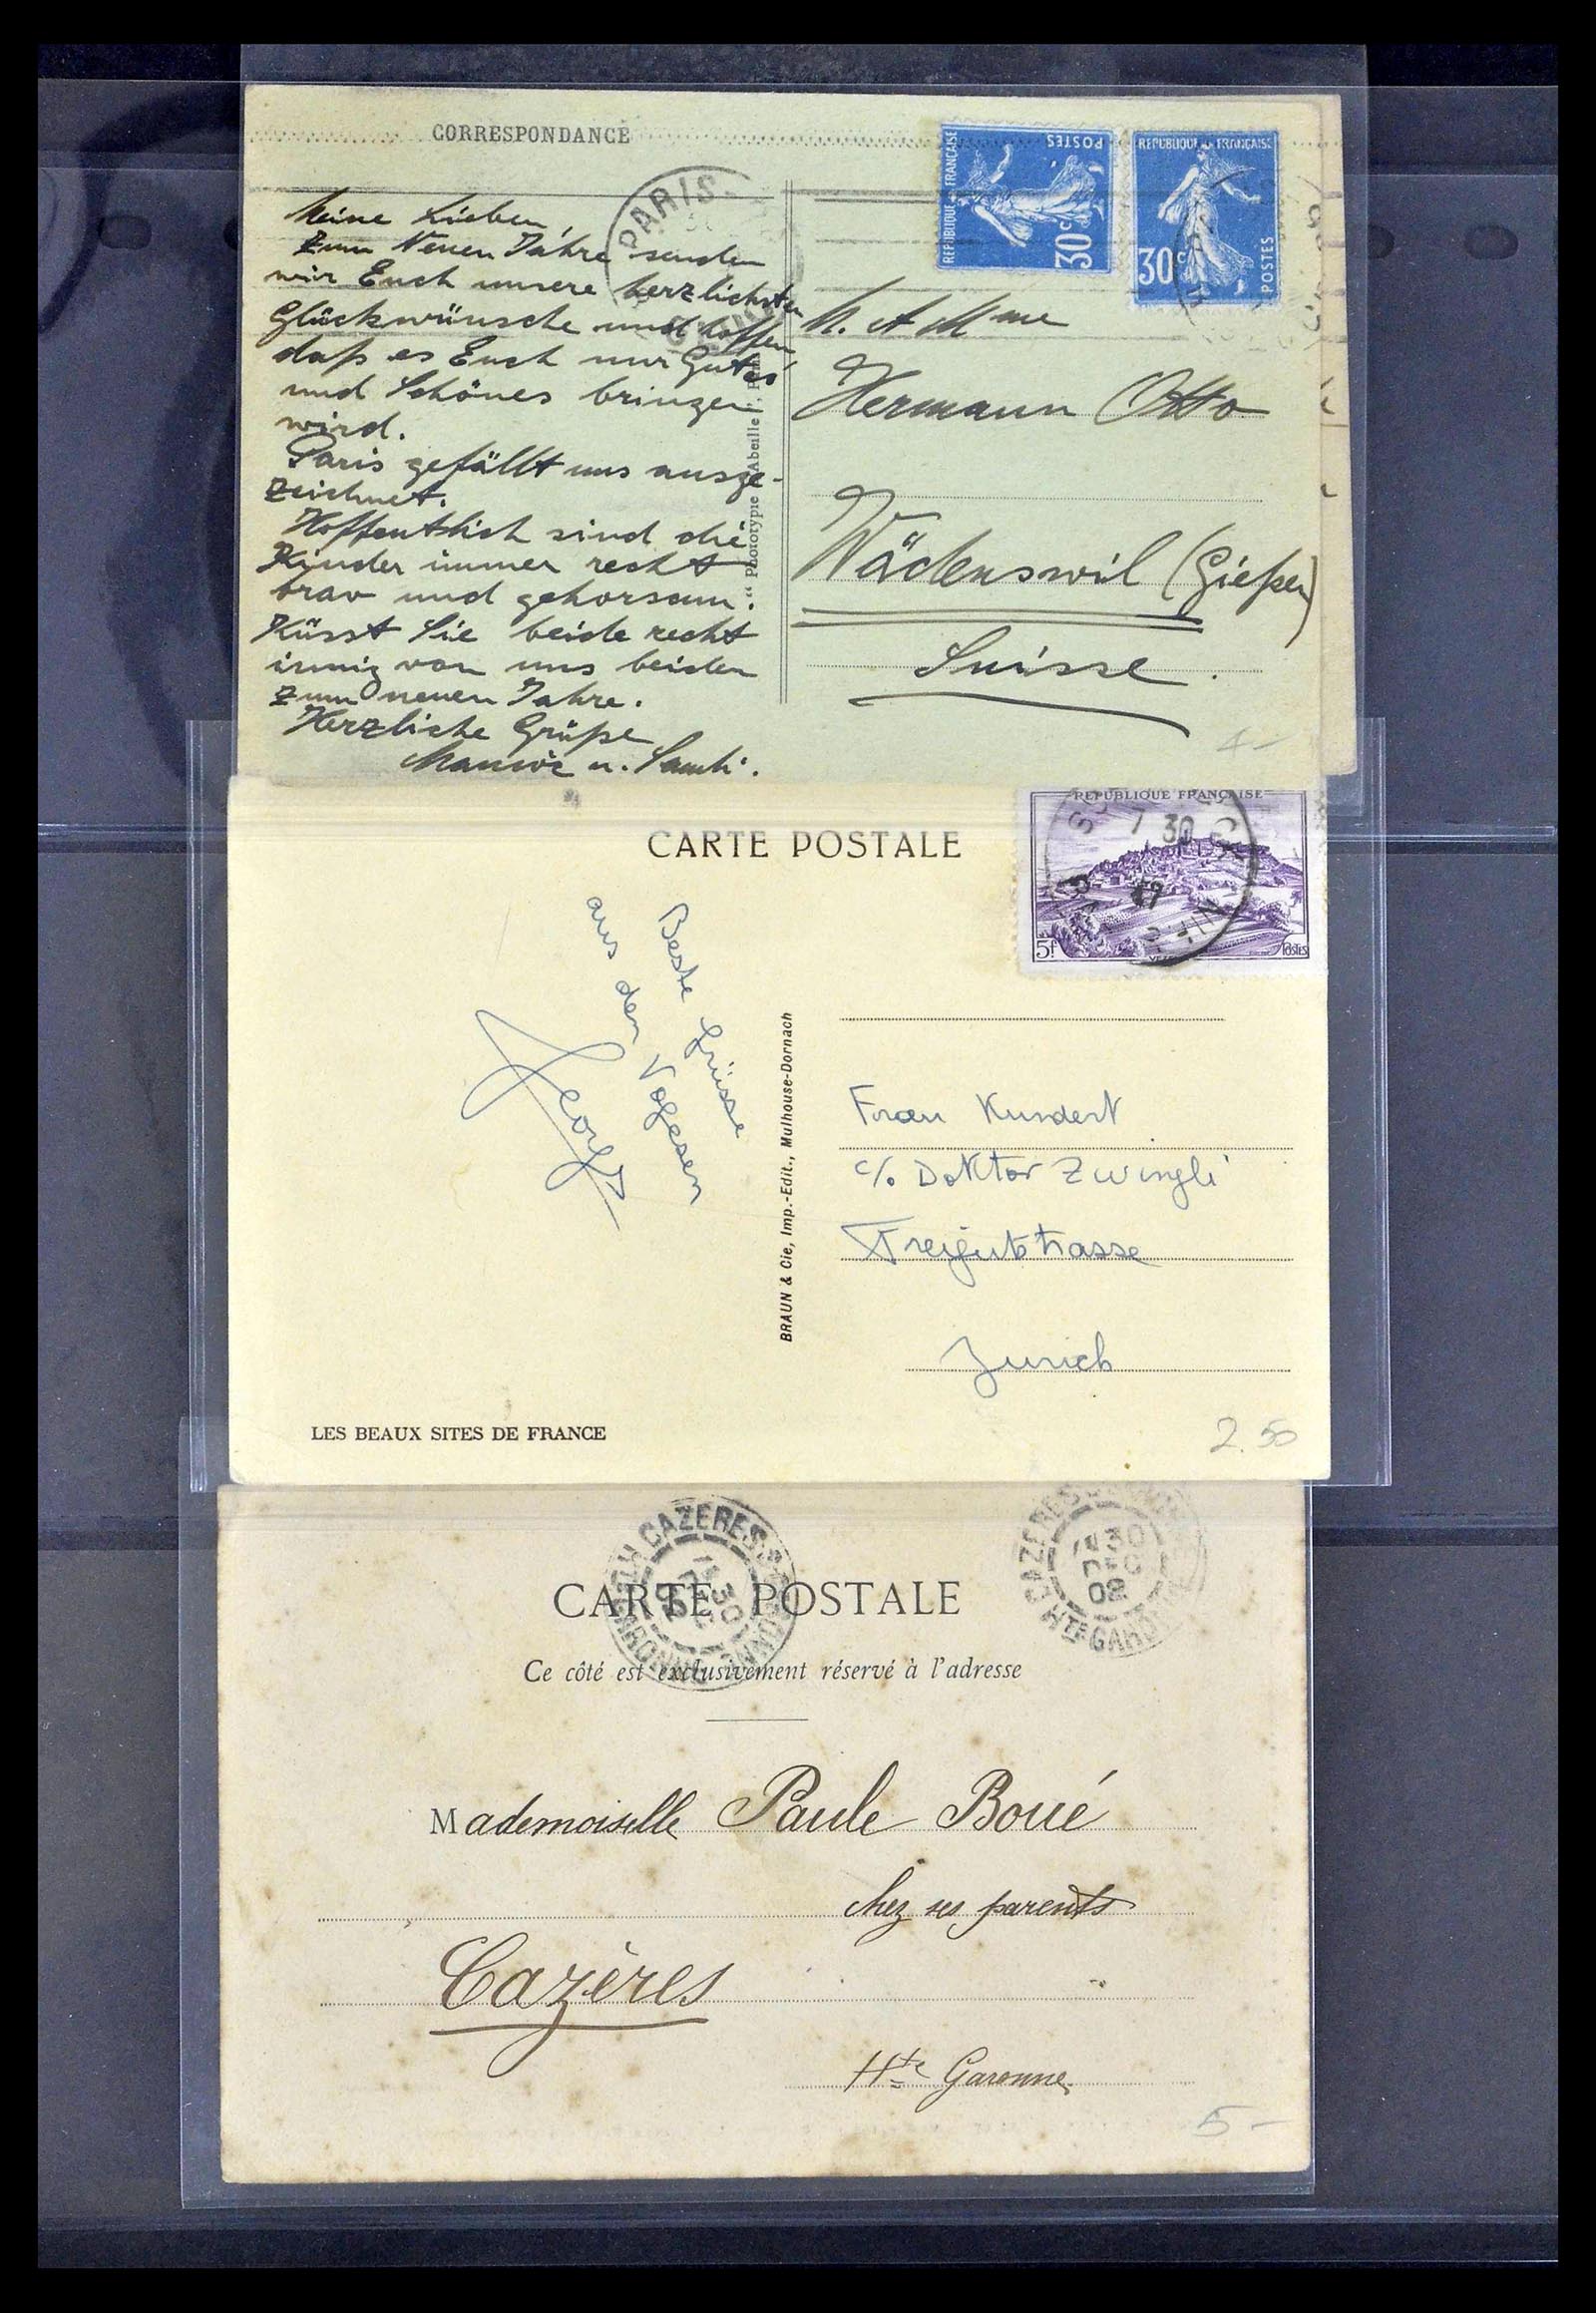 CORRESPONDANCE
PARIS
REPUBLIQUE FRANÇAISE
POSTES
30c
REPUBLIQUE FRANÇAISE
30c
POSTES
Meine Lieben
Zum Neuen Jahre senden
wir Euch unsere herzlichsten
Glückwünsche und hoffen
daß es Euch nur Gutes
und Schönes bringen
wird.
Paris gefällt uns ausge-
zeichnet.
Hoffentlich sind die
Kinder immer recht
brav und gehorsam.
Küsst Sie beide recht
innig von uns beiden
zum neuen Jahre.
Herzliche Grüße
u.
" Phototypie Abeille
M. et Mme
Hermann Otto
Wädenswil (Gießen)
Suisse.
4-
CARTE POSTALE
REPUBLIQUE FRANÇAISE
7 30
47
5f
Postes
Beste Grüsse
aus den Vogesen
Georg
BRAUN & Cie, Imp.-Edit., Mulhouse-Dornach
Frau Kundert
c/o Doktor Zwingli
Freigutstrasse
Zurich
LES BEAUX SITES DE FRANCE
2.50
CAZERES
30
CAZERES
30
DEC
02
HTE GARONNE
CARTE POSTALE
Ce côté est exclusivement réservé à l'adresse
Mademoiselle Paule Boué
chez ses parents
Cazères
Hte Garonne
5-